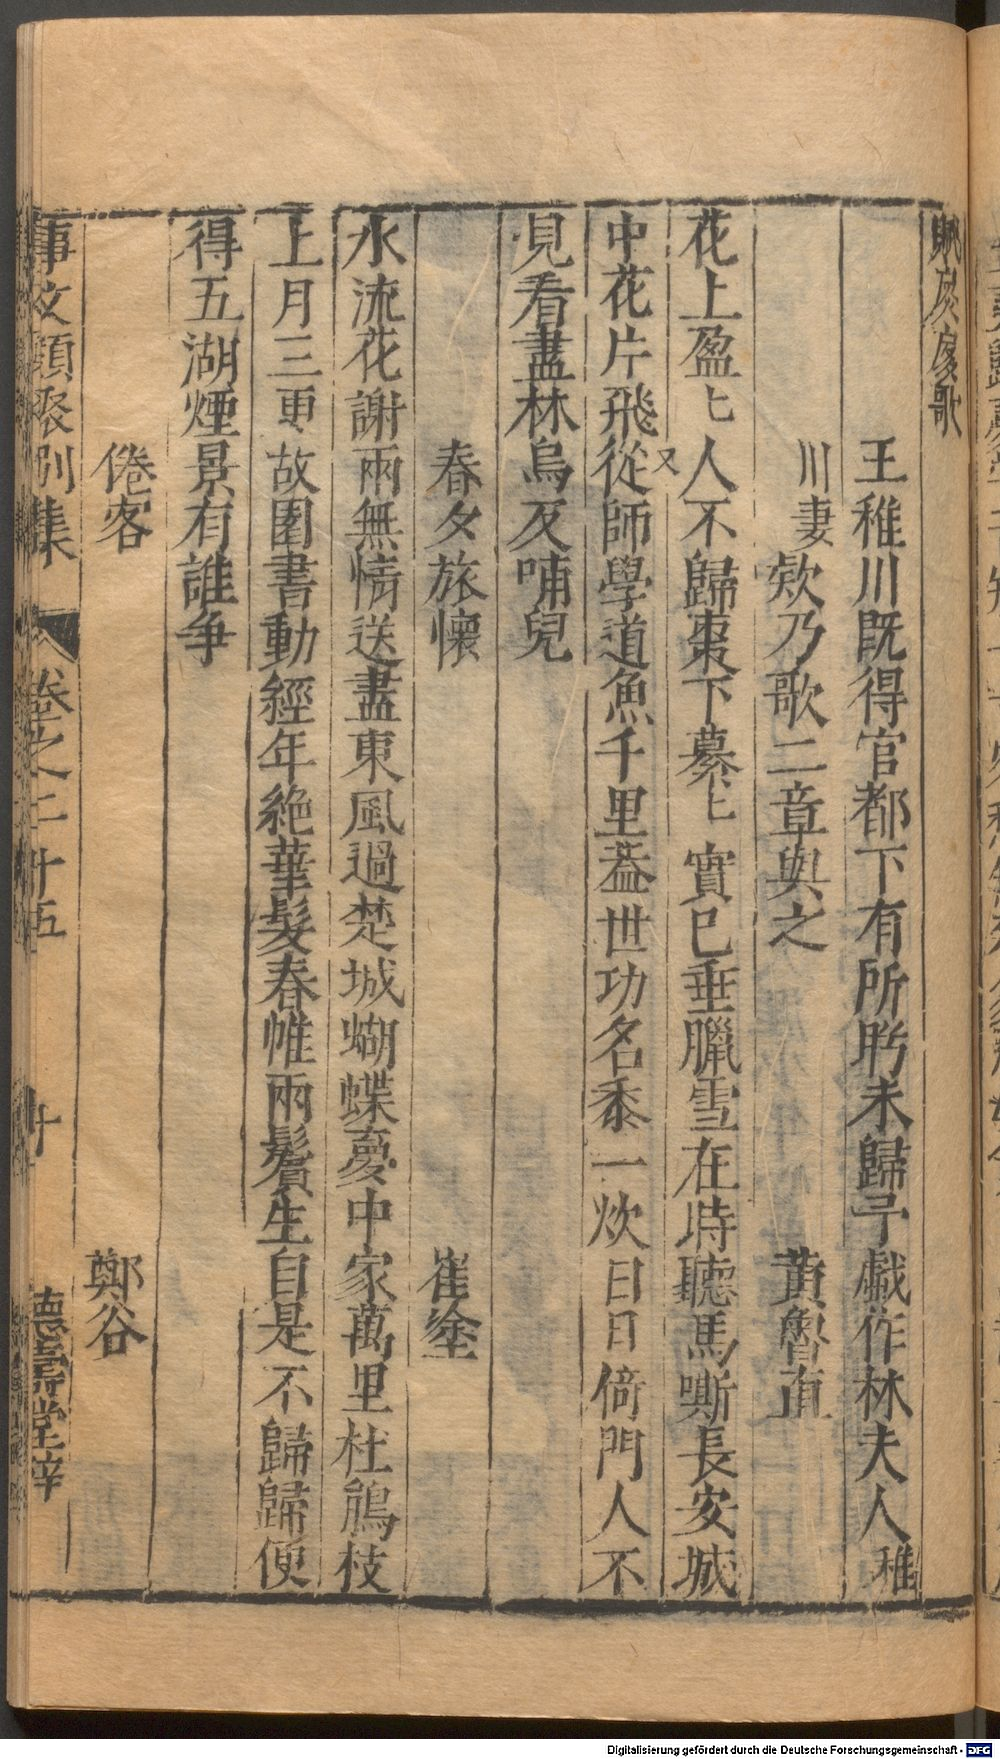 賦扊扅歌
王稚川既得官都下有所盻未歸予戲作林夫人稚
川妻欸乃歌二章與之　黄魯直
花上盈〻人不歸棗下纂〻實已垂臘雪在時聽馬嘶長安城
中花片飛　又　從師學道魚千里葢世功名黍一炊日日倚門人不
見看盡林烏反哺兒
春夕旅懷　崔塗
水流花謝兩無情送盡東風過楚城蝴蝶夢中家萬里杜鵑枝
上月三更故園書動經年絶華髮春帷兩鬢生自是不歸歸便
得五湖煙景有誰争
倦客　鄭谷
事文類聚別集　卷之二十五　十　德壽堂梓
Digitalisierung gefördert durch die Deutsche Forschungsgemeinschaft - DFG